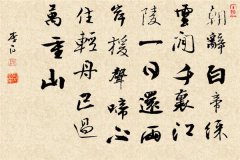 朝辭白帝綵
雲間千裏江
陵一日還兩
岸猿聲啼不
住輕舟已過
萬重山